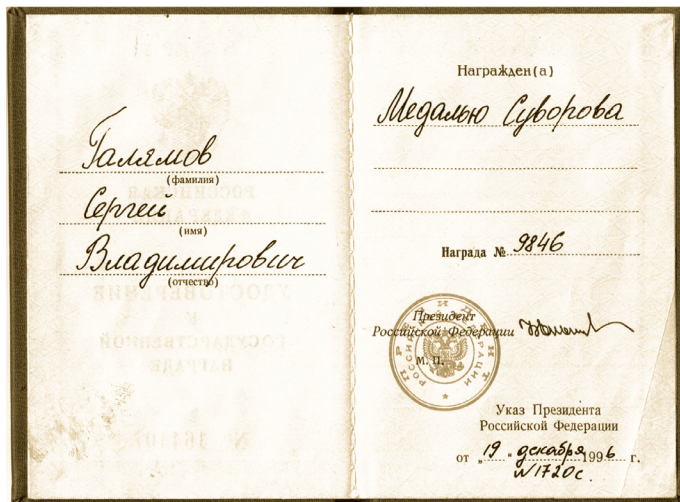 Галямов
(фамилия)
Сергей
(имя)
Владимирович
(отчество)
Награжден(а)
Медалью Суворова
Награда № 9846
Президент
Российской Федерации
М. П.
Указ Президента
Российской Федерации
от „19“ декабря 1996 г.
N1720с.